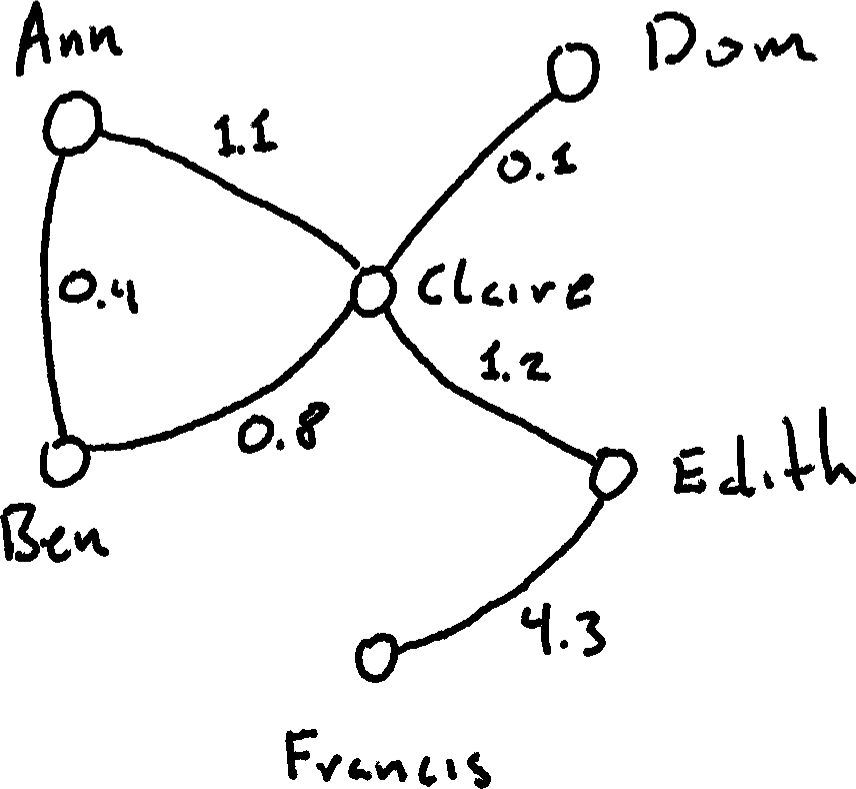 Ann
Dom
1.1
0.1
0.4
Claire
1.2
0.8
Edith
Ben
4.3
Francis